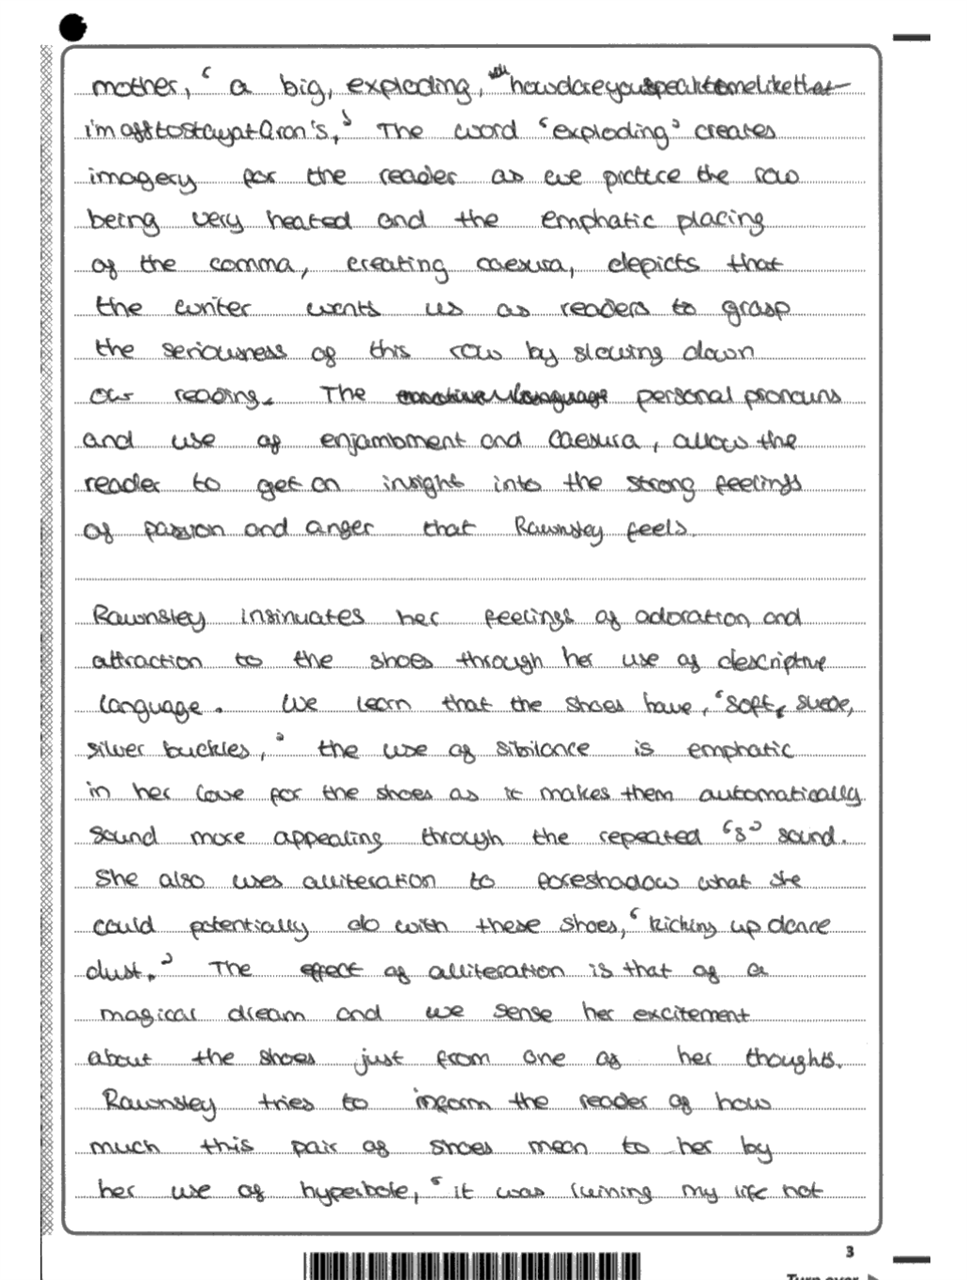 mother, ‘ a big, exploding, howdareyouspeaktomelikethat
i'm offtostayat Aron's,’ The word ‘exploding’ creates
imagery for the reader as we picture the row
being very heated and the emphatic placing
of the comma, creating caesura, depicts that
the writer wants us as readers to grasp
the seriousness of this row by slowing down
our reading. The personal pronouns
and use of enjambment and caesura, allow the
reader to get an insight into the strong feelings
of passion and anger that Rawnsley feels.
Rawnsley insinuates her feelings of adoration and
attraction to the shoes through her use of descriptive
language. We learn that the shoes have, ‘soft, suede,
silver buckles,’ the use of sibilance is emphatic
in her love for the shoes as it makes them automatically
sound more appealing through the repeated ‘s’ sound.
She also uses alliteration to foreshadow what she
could potentially do with these shoes, ‘kicking up dance
dust.’ The effect of alliteration is that of a
magical dream and we sense her excitement
about the shoes just from one of her thoughts.
Rawnsley tries to inform the reader of how
much this pair of shoes mean to her by
her use of hyperbole, ‘it was ruining my life not
3
Turn over